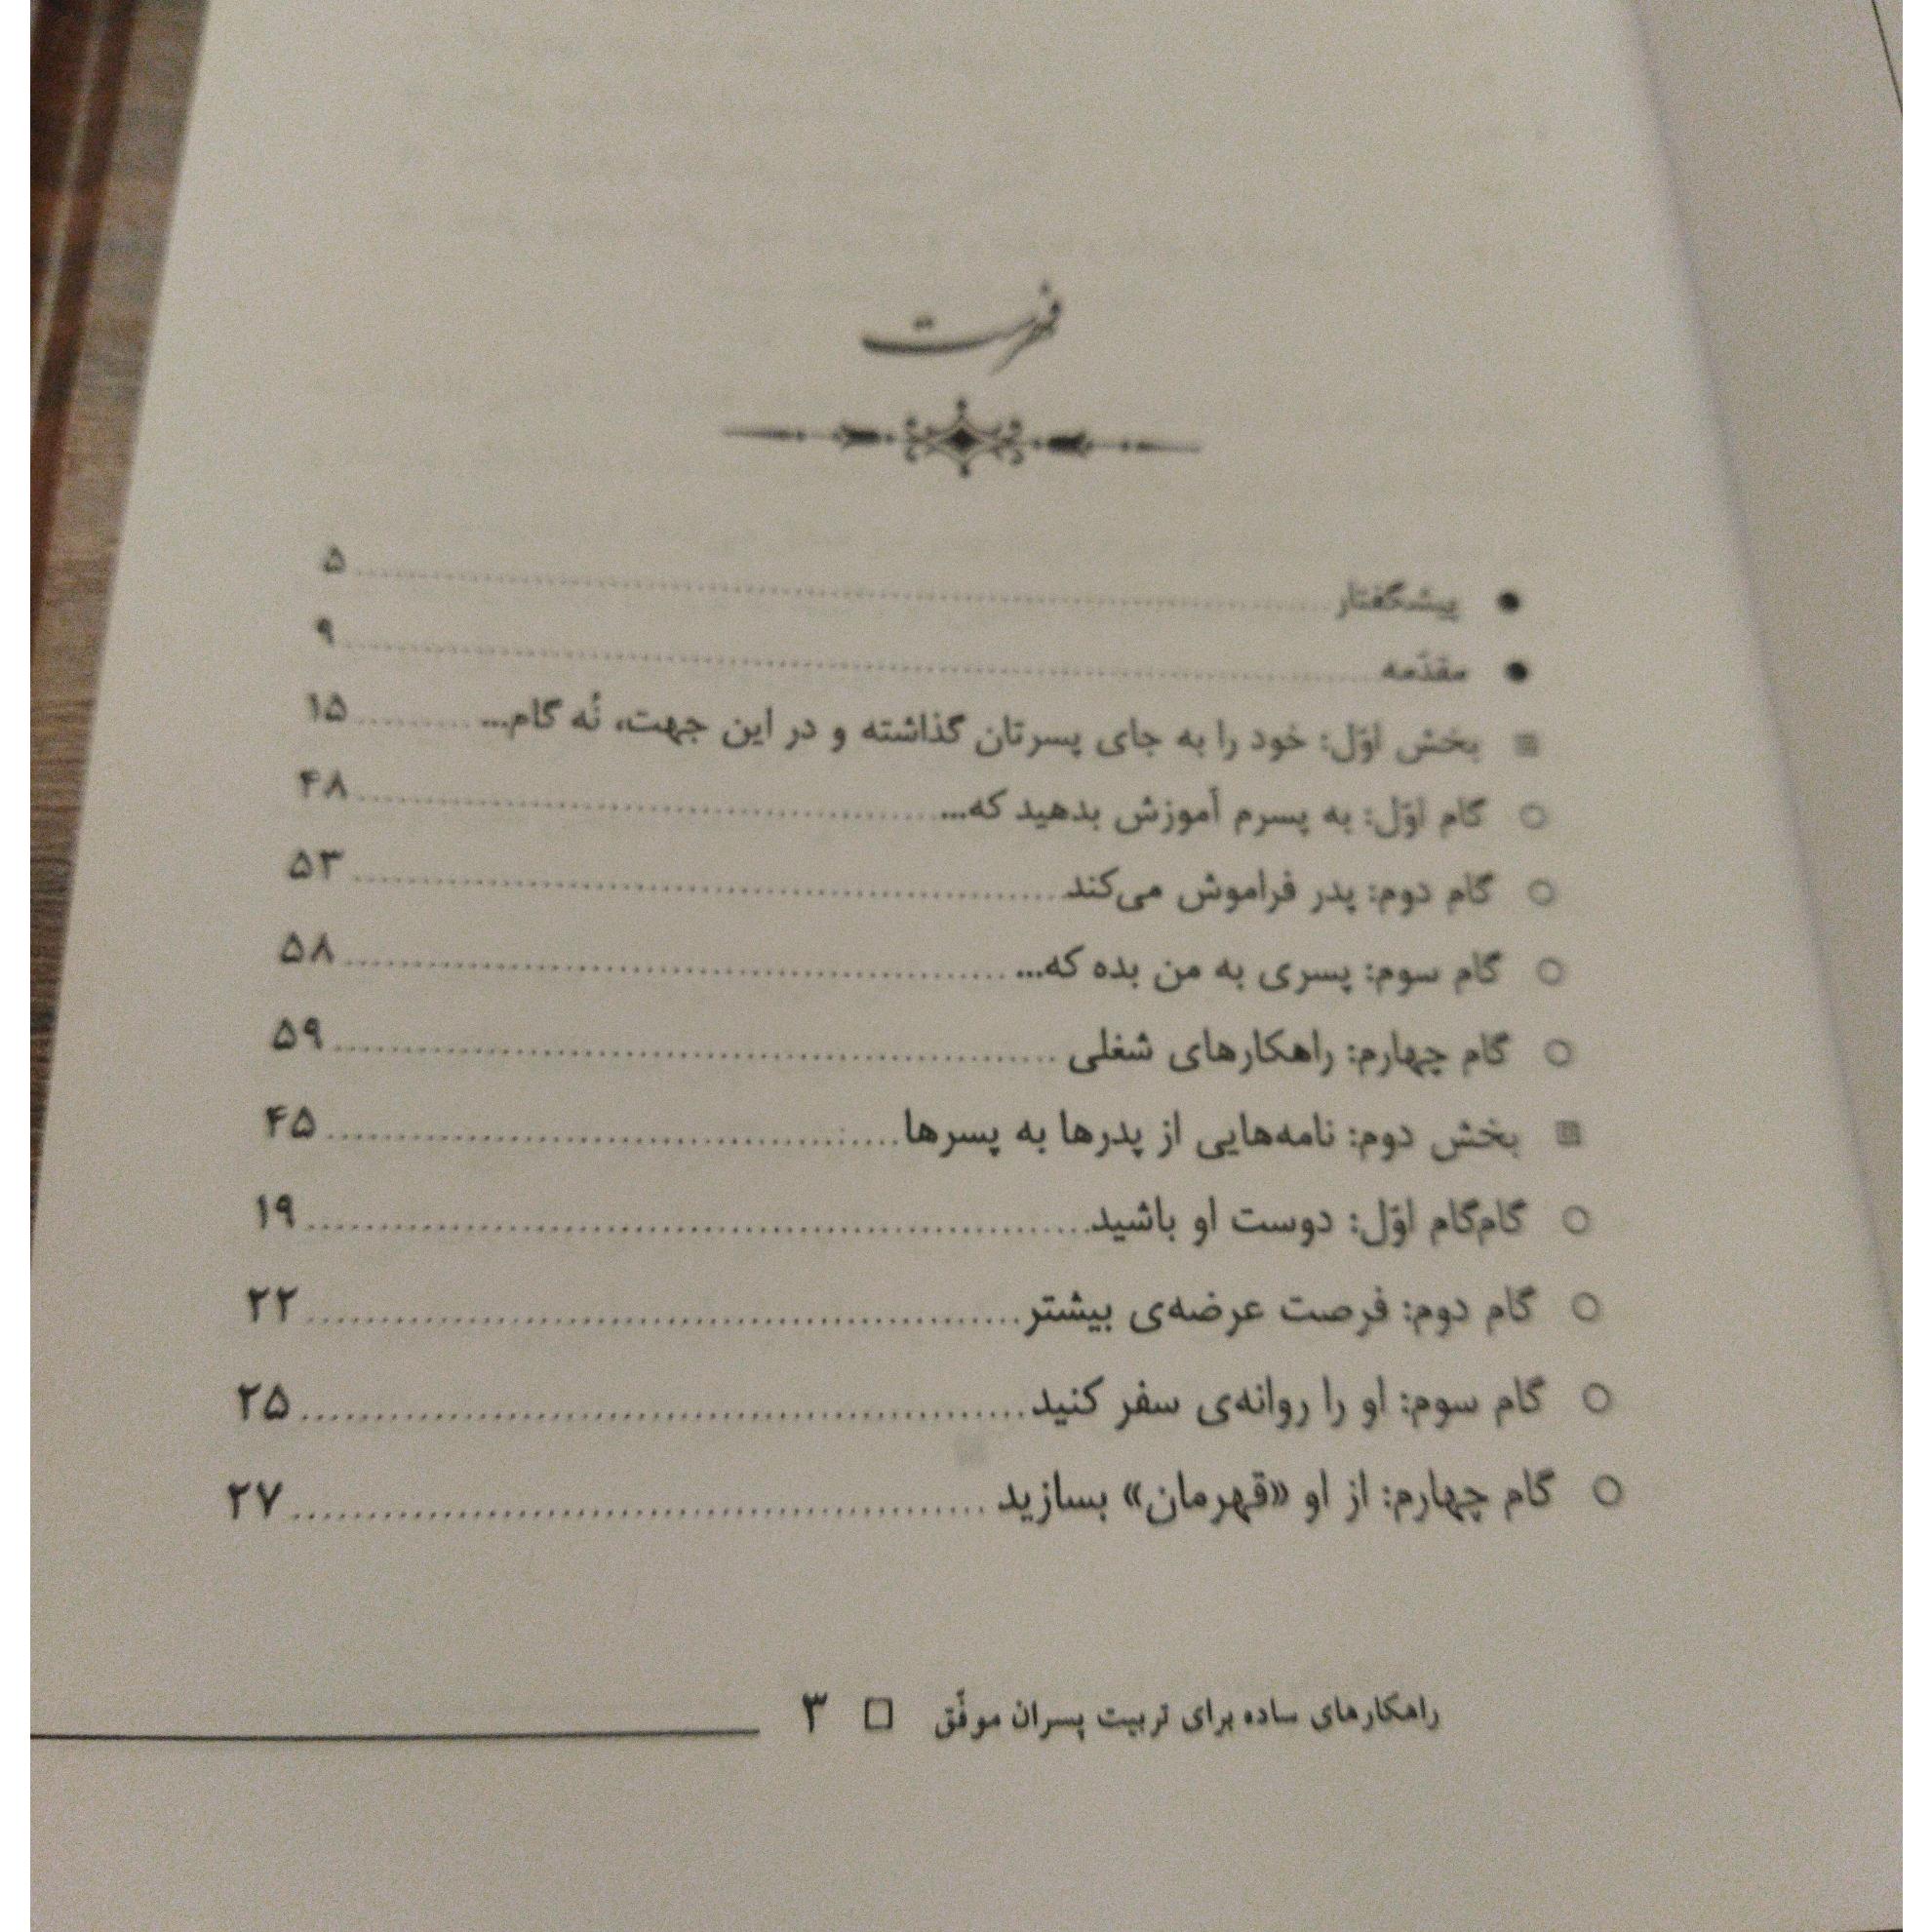 فهرست
● پیشگفتار ........ ۵
● مقدّمه ........ ۹
■ بخش اوّل: خود را به جای پسرتان گذاشته و در این جهت، نُه گام... ........ ۱۵
○ گام اوّل: به پسرم آموزش بدهید که... ........ ۴۸
○ گام دوم: پدر فراموش می‌کند ........ ۵۳
○ گام سوم: پسری به من بده که... ........ ۵۸
○ گام چهارم: راهکارهای شغلی ........ ۵۹
■ بخش دوم: نامه‌هایی از پدرها به پسرها ........ ۴۵
○ گام‌گام اوّل: دوست او باشید ........ ۱۹
○ گام دوم: فرصت عرضه‌ی بیشتر ........ ۲۲
○ گام سوم: او را روانه‌ی سفر کنید ........ ۲۵
○ گام چهارم: از او «قهرمان» بسازید ........ ۲۷
راهکارهای ساده برای تربیت پسران موفّق □ ۳